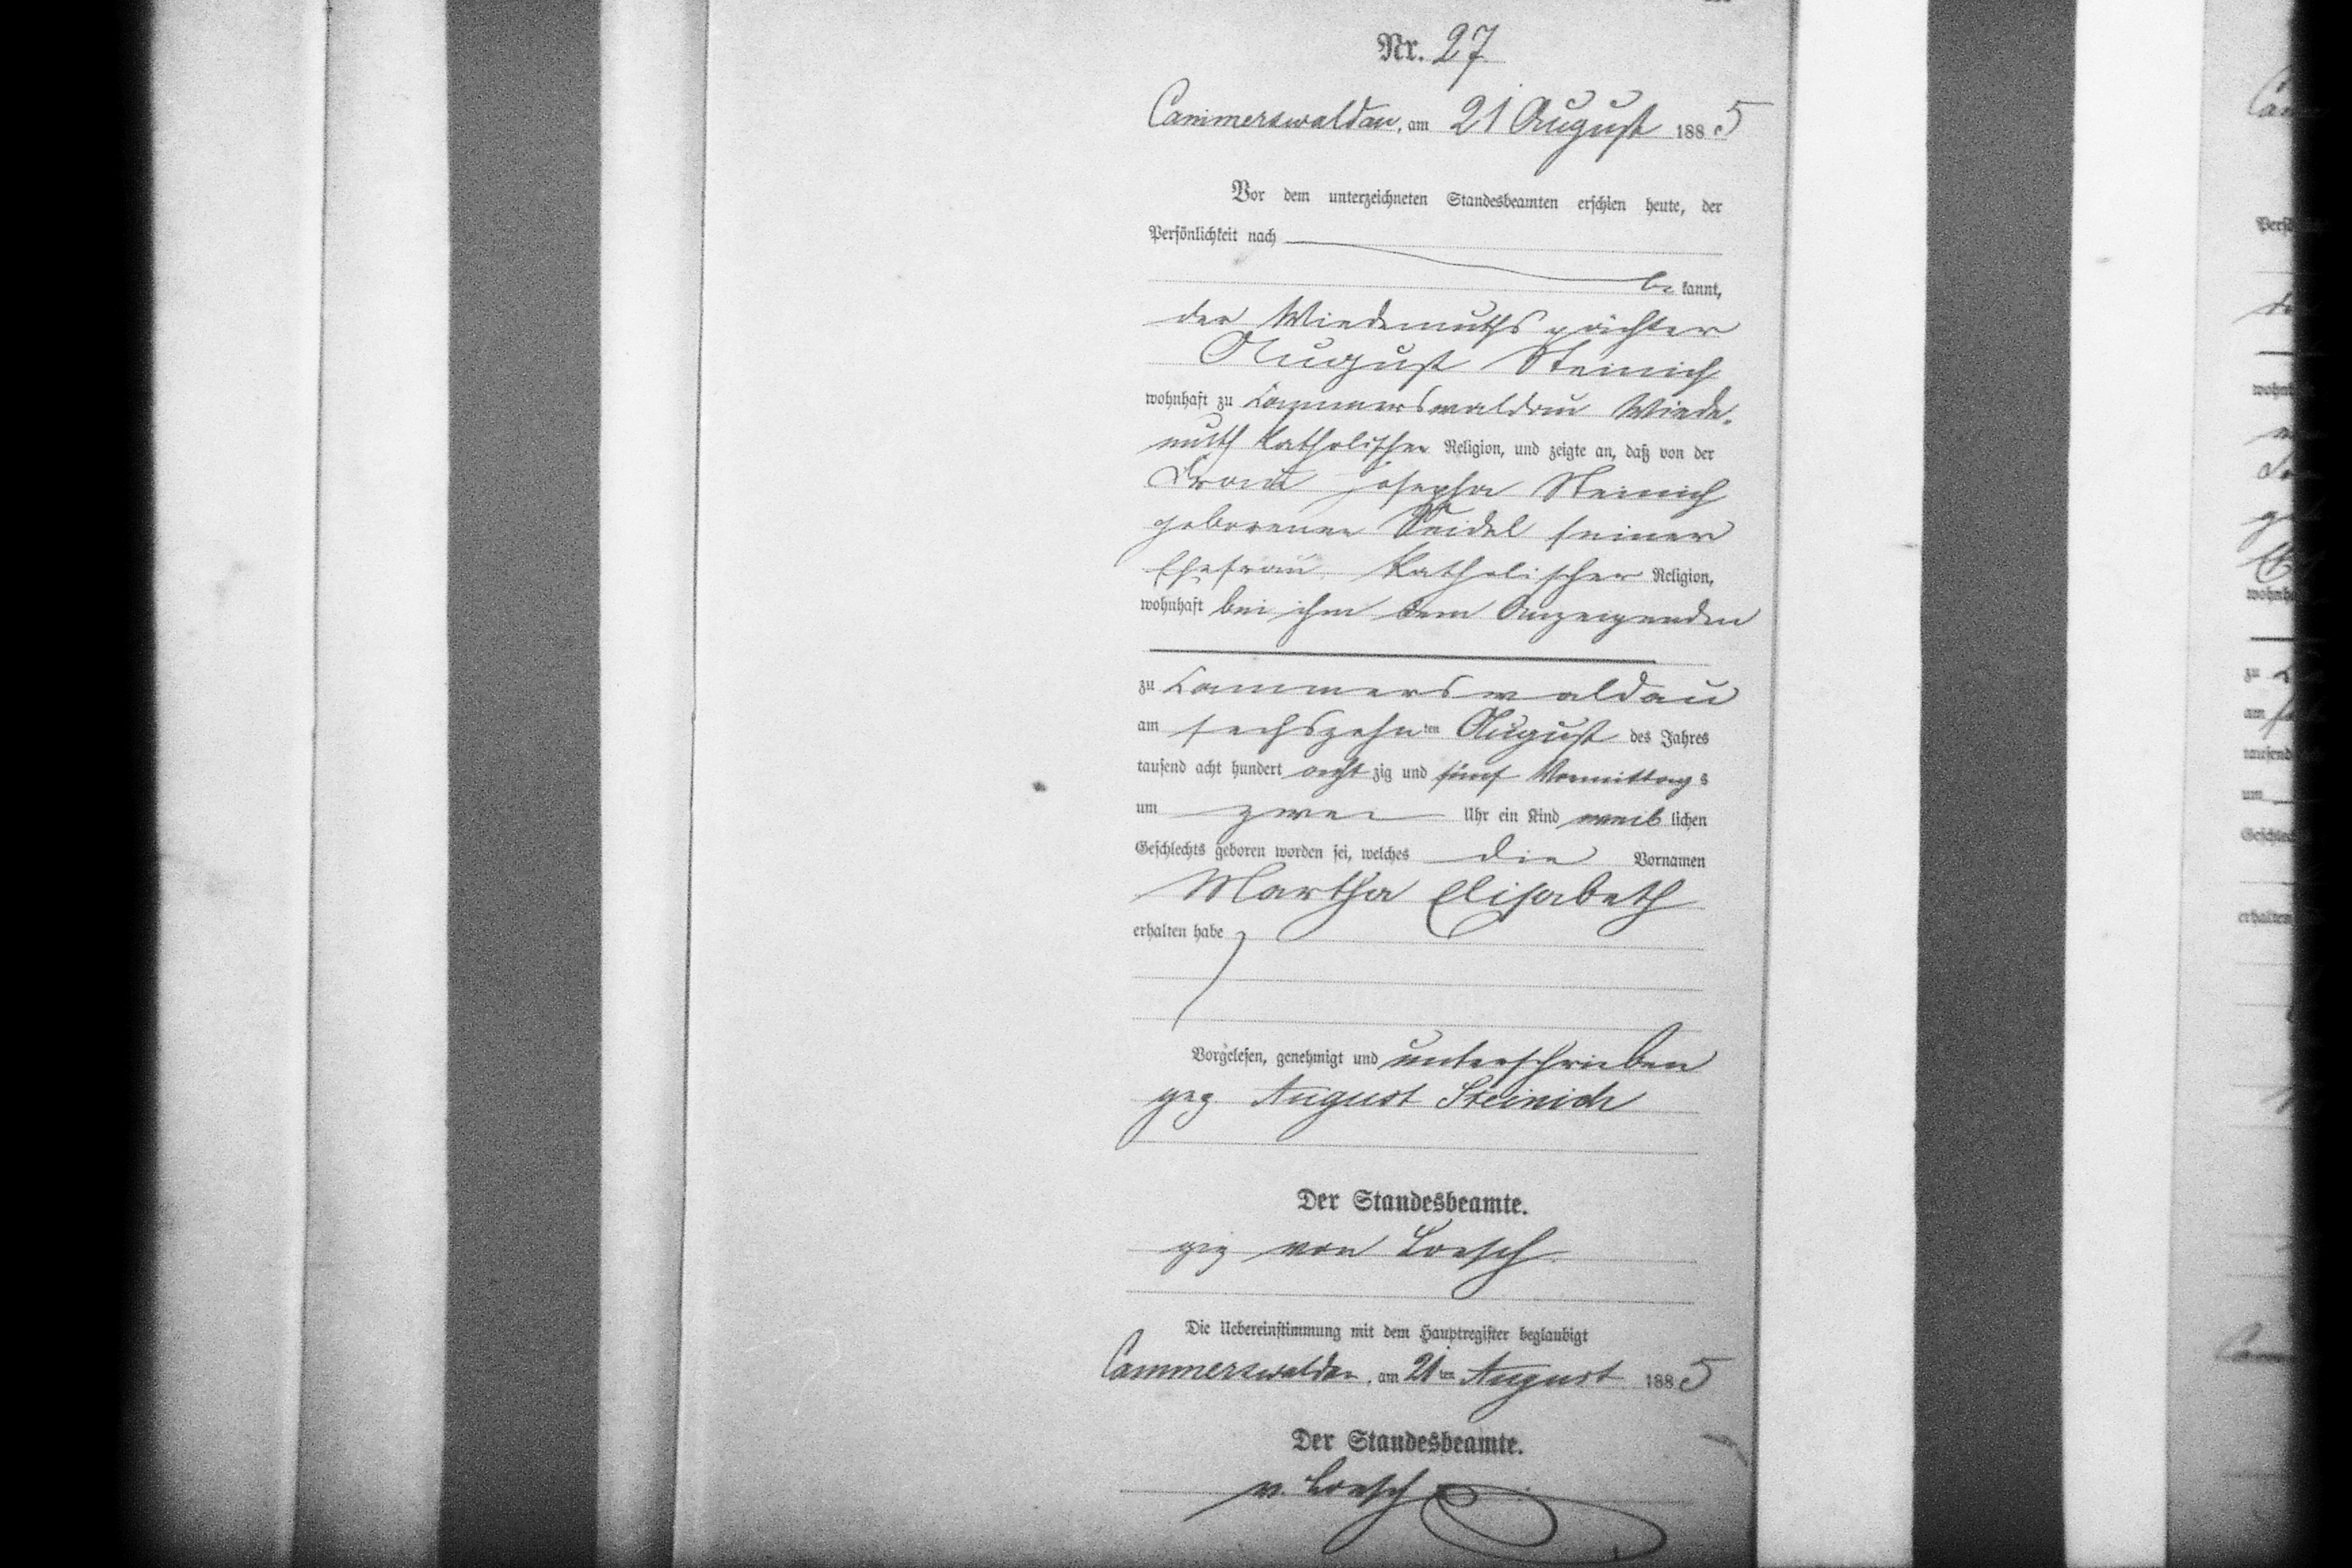 Nr. 27
Cammerswaldau, am 21 August 1885
Vor dem unterzeichneten Standesbeamten erschien heute, der
Persönlichkeit nach
be kannt,
der Wiedemuthspächter
August Steinich
wohnhaft zu Cammerswaldau Wiede-
muth katholischer Religion, und zeigte an, daß von der
Frau Josepha Steinich
geborenen Seidel seiner
Ehefrau, katholischer Religion,
wohnhaft bei ihm dem Anzeigenden
zu Cammerswaldau
am sechszehnten August des Jahres
tausend acht hundert achtzig und fünf Vormittags
um zwei Uhr ein Kind weiblichen
Geschlechts geboren worden sei, welches die Vornamen
Martha Elisabeth
erhalten habe
Vorgelesen, genehmigt und unterschrieben
gez August Steinich
Der Standesbeamte.
gez von Loesch
Die Uebereinstimmung mit dem Hauptregister beglaubigt
Cammerswaldau, am 21ten August 1885
Der Standesbeamte.
v. Loesch